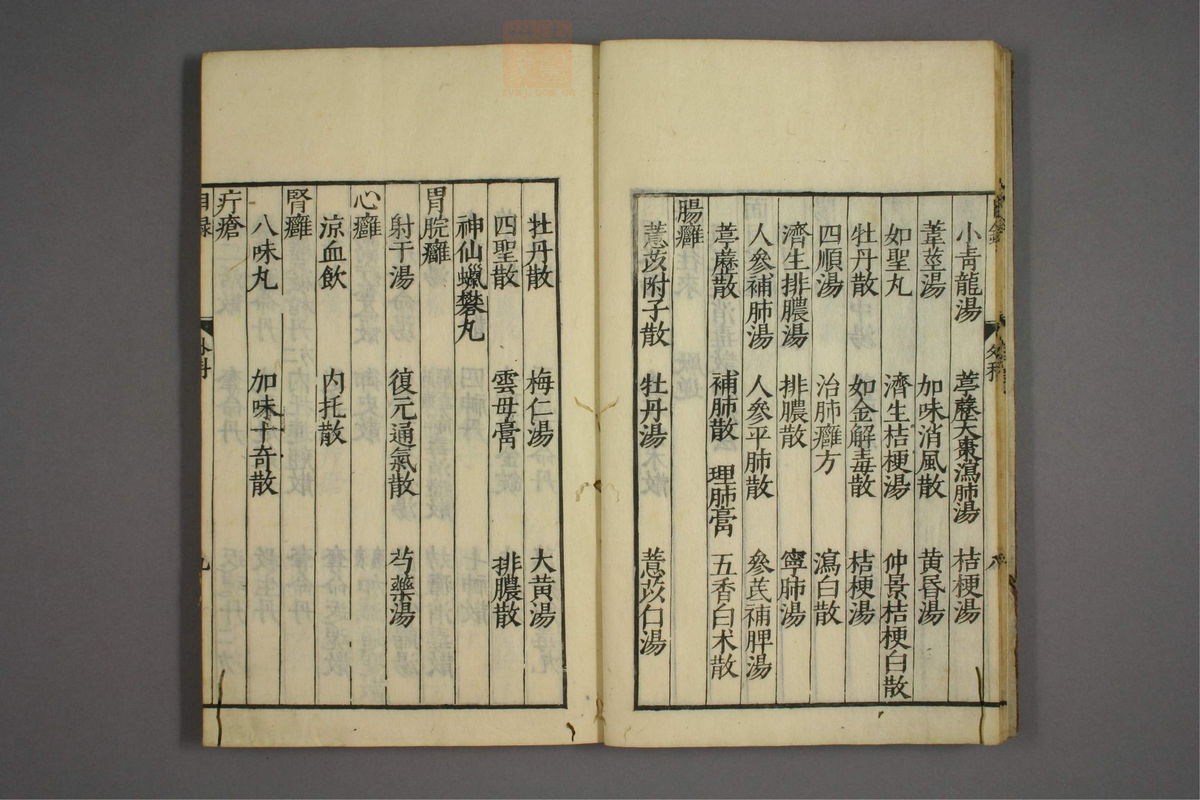 小青龍湯 葶藶大棗瀉肺湯 桔梗湯
葦莖湯 加味消風散 黃昏湯
如聖丸 濟生桔梗湯 仲景桔梗白散
牡丹散 如金解毒散 桔梗湯
四順湯 治肺癰方 瀉白散
濟生排膿湯 排膿散 寧肺湯
人參補肺湯 人參平肺散 參芪補脾湯
葶藶散 補肺散 理肺膏 五香白术散
腸癰
薏苡附子散 牡丹湯 薏苡仁湯
牡丹散 梅仁湯 大黃湯
四聖散 雲母膏 排膿散
神仙蠟礬丸
胃脘癰
射干湯 復元通氣散 芍藥湯
心癰
涼血飲 內托散
腎癰
八味丸 加味十奇散
疔瘡
目錄 外科 九